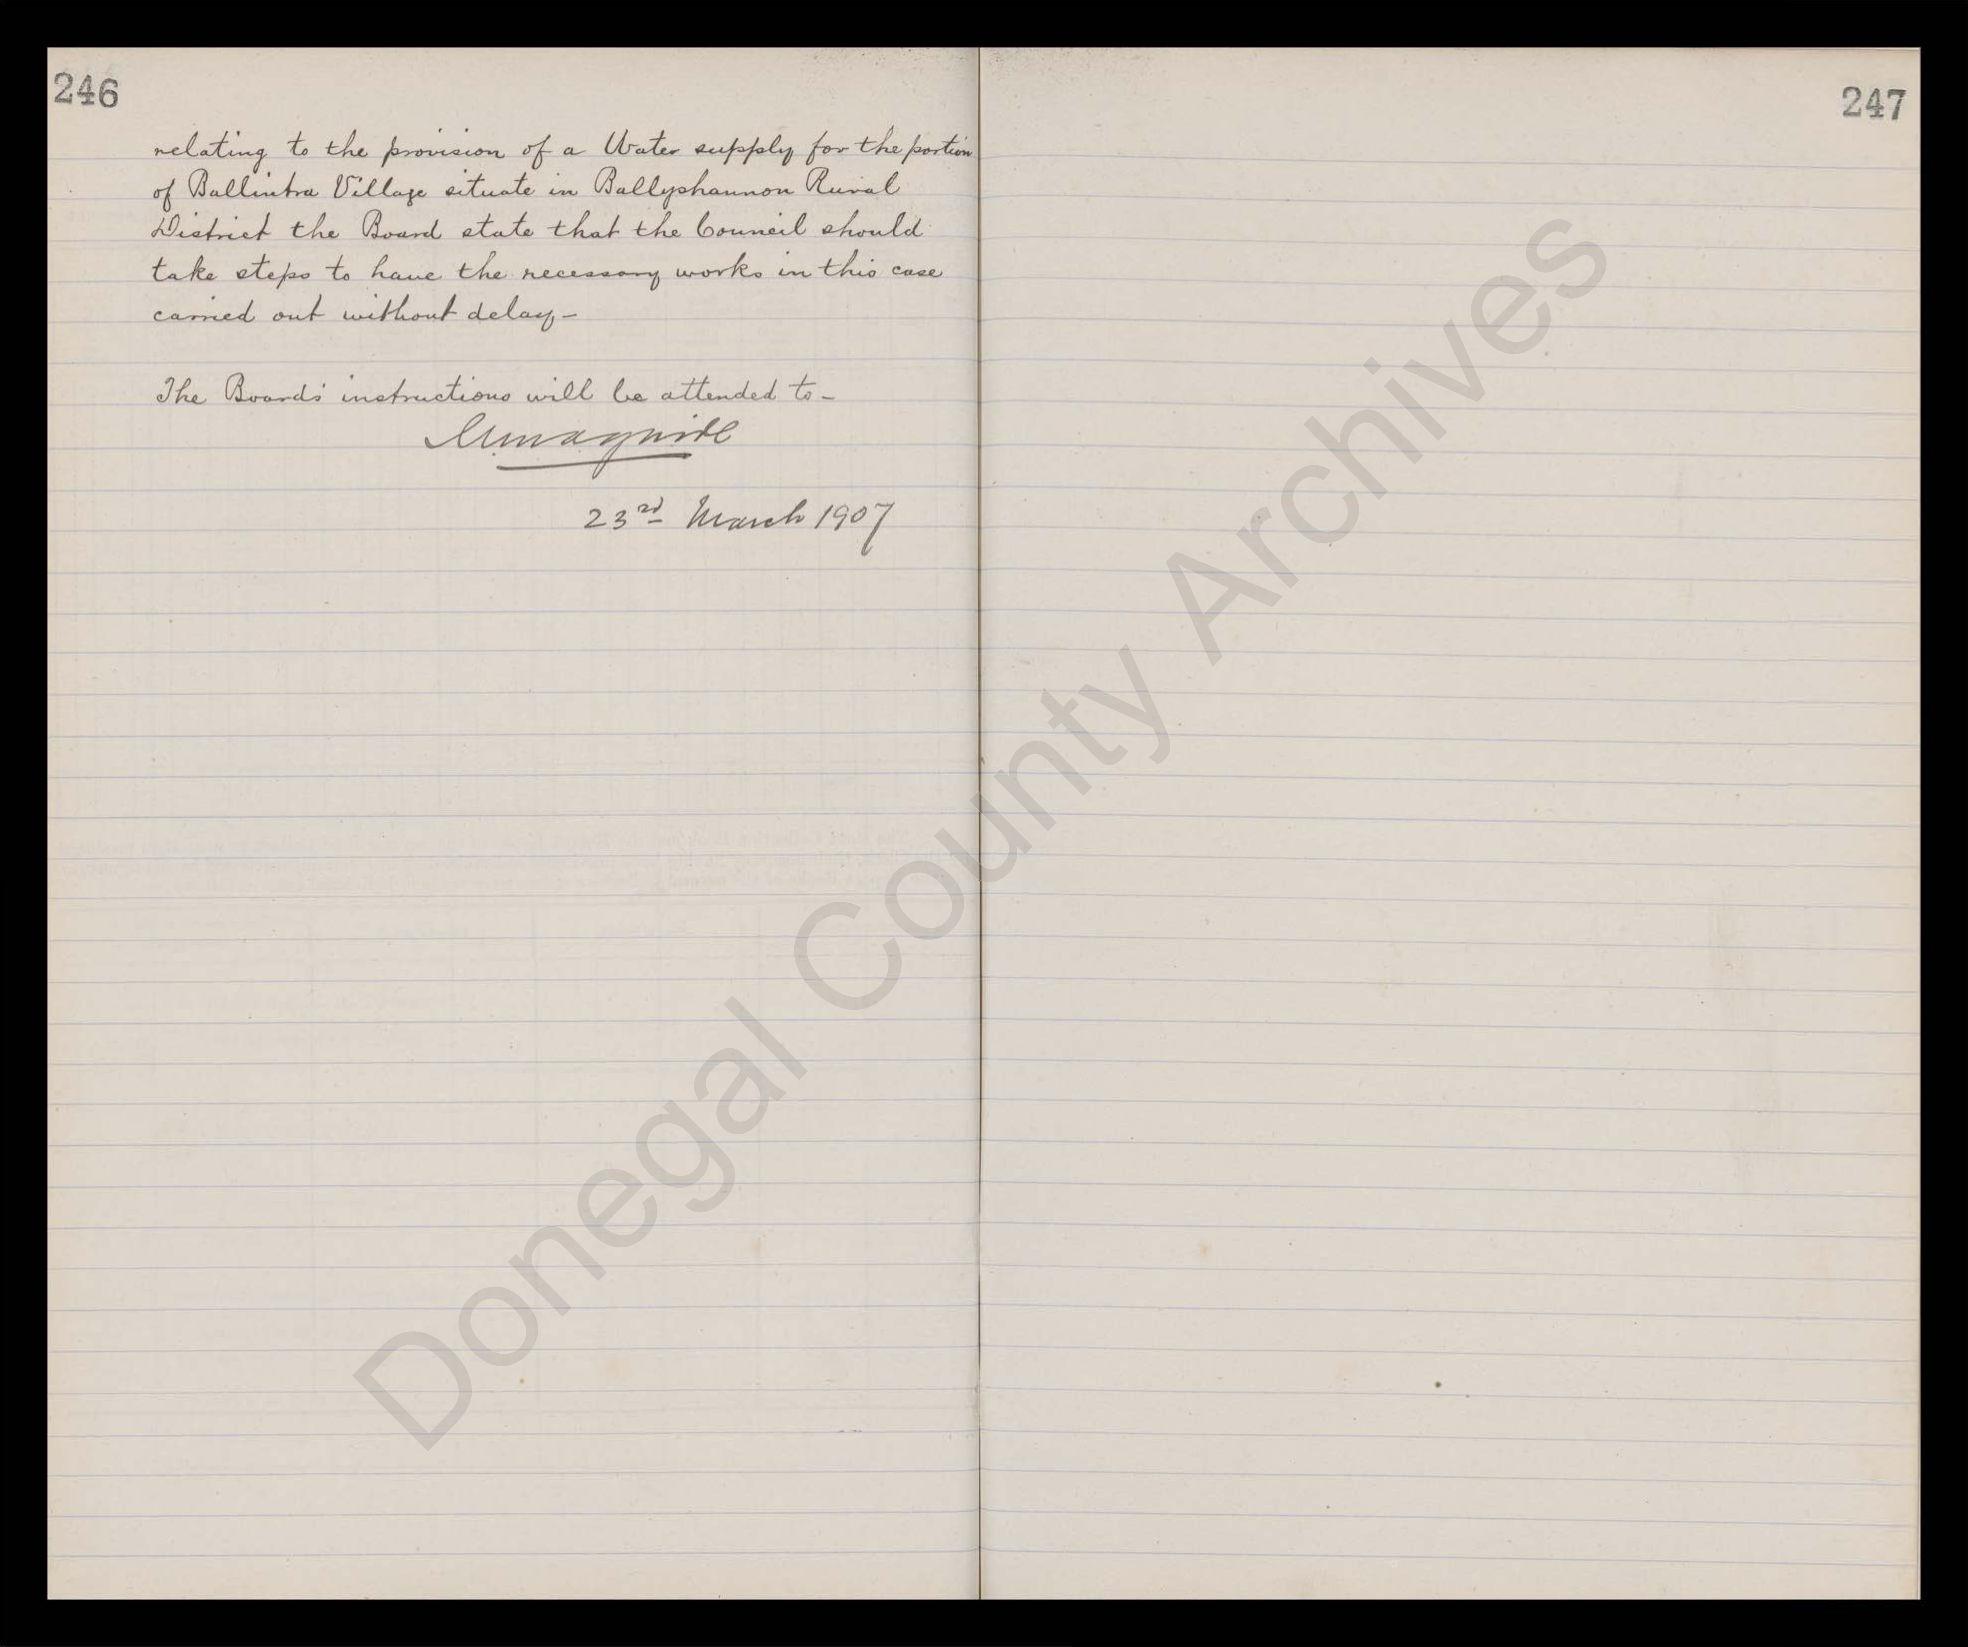 246
relating to the provision of a Water supply for the portion
of Ballintra Village situate in Ballyshannon Rural
District the Board state that the Council should
take steps to have the necessary works in this case
carried out without delay -
The Board's instructions will be attended to -
23rd March 1907
247
Donegal County Archives